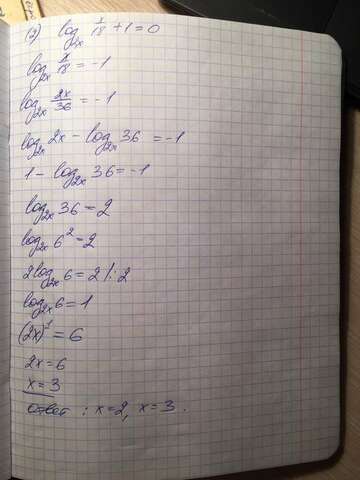 (2) log_{2x} x/18 + 1 = 0
log_{2x} x/18 = -1
log_{2x} 2x/36 = -1
log_{2x} 2x - log_{2x} 36 = -1
1 - log_{2x} 36 = -1
log_{2x} 36 = 2
log_{2x} 6^2 = 2
2 log_{2x} 6 = 2 |: 2
log_{2x} 6 = 1
(2x)^1 = 6
2x = 6
x = 3
ответ : x = 2, x = 3 .